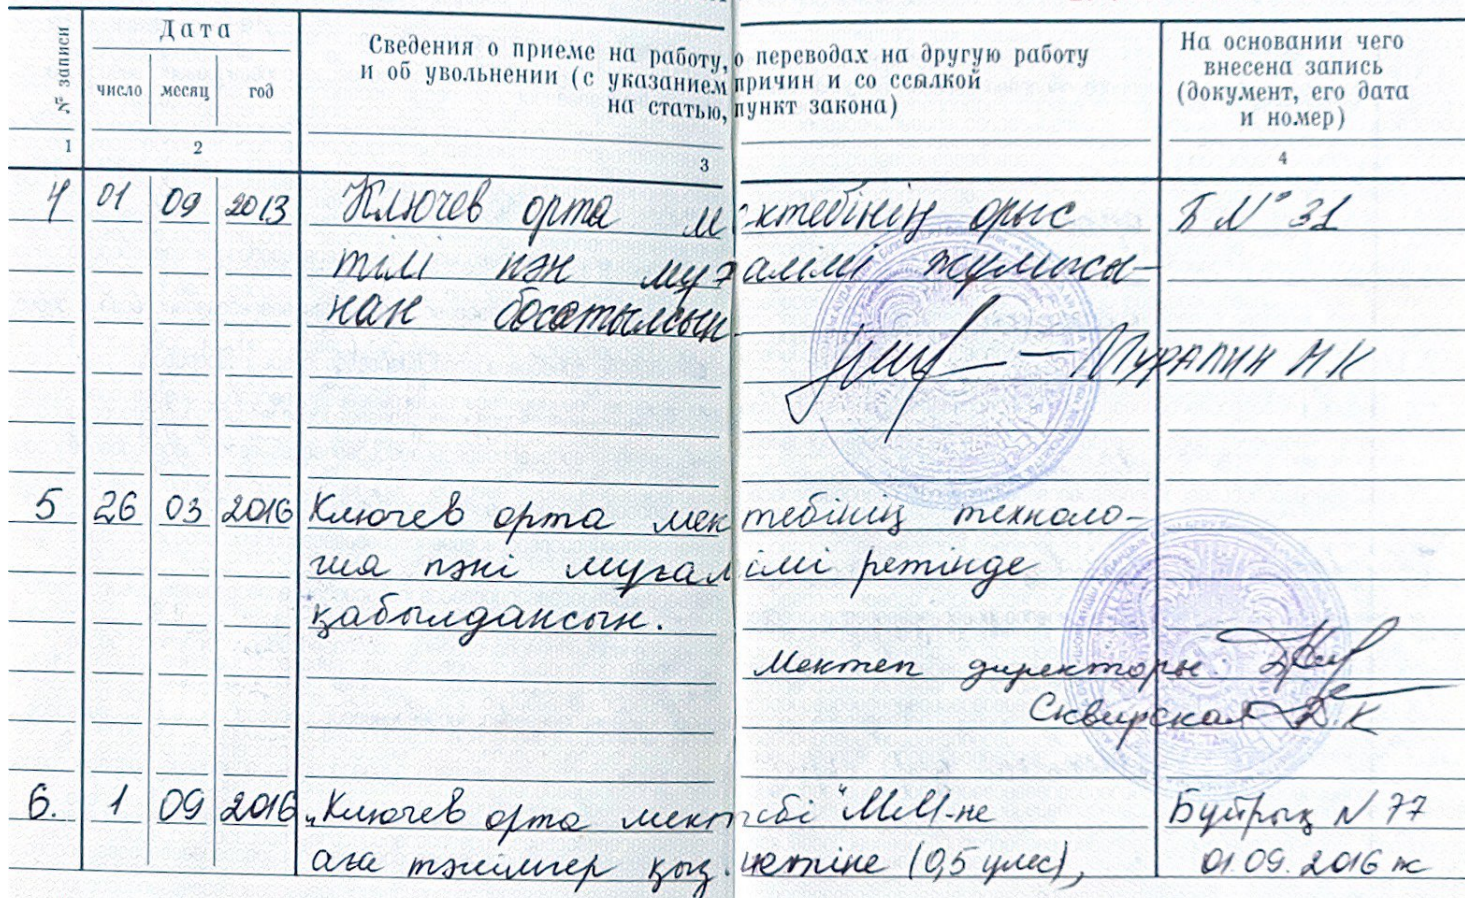 № записи
Дата
число месяц год
Сведения о приеме на работу, о переводах на другую работу
и об увольнении (с указанием причин и со ссылкой
на статью, пункт закона)
На основании чего
внесена запись
(документ, его дата
и номер)
1 2 3 4
4 01 09 2013 Ключев орта мектебінің орыс Б № 31
тілі пән мұғалімі жұмысы-
нан босатылсын
Мурапин М К
5 26 03 2016 Ключев орта мектебінің техноло-
гия пәні мұғалімі ретінде
қабылдансын.
Мектеп директоры
Сквирская Д.К
6. 1 09 2016 „Ключев орта мектебі" ММ-не Бұйрық N 77
аға тәлімгер қызметіне (0,5 үлес), 01.09.2016 ж